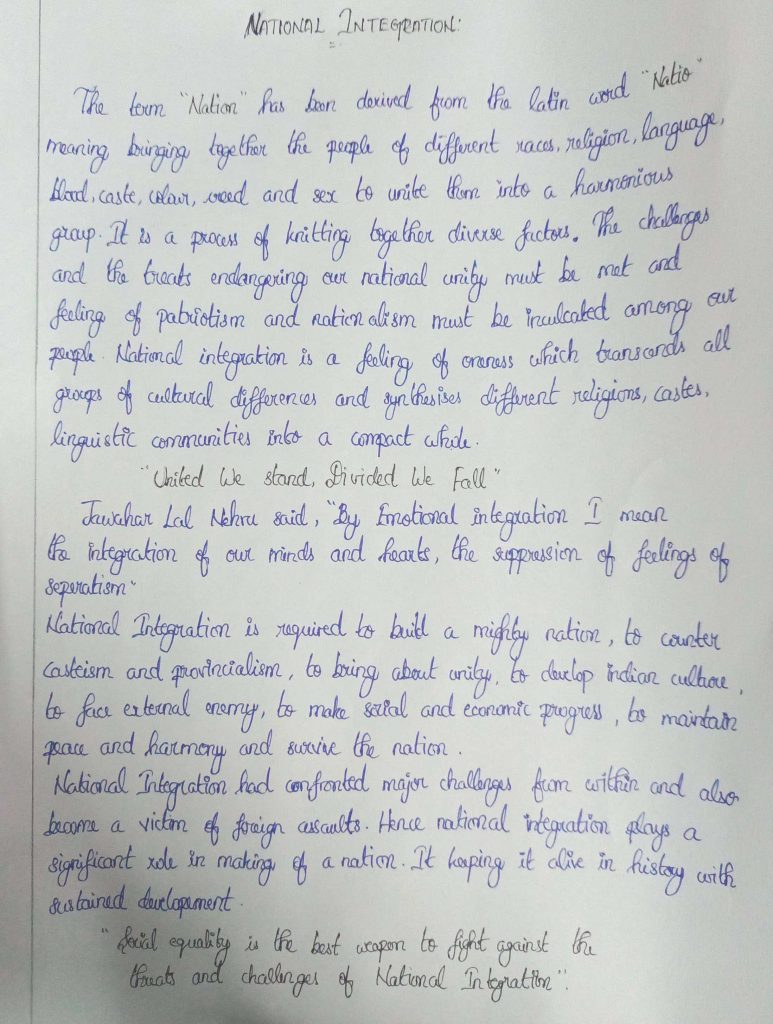 NATIONAL INTEGRATION:
The term "Nation" has been derived from the latin word "Natio"
meaning bringing together the people of different races, religion, language,
blood, caste, colour, creed and sex to unite them into a harmonious
group. It is a process of knitting together diverse factors. The challenges
and the treats endangering our national unity must be met and
feeling of patriotism and nationalism must be inculcated among our
people. National integration is a feeling of oneness which transcends all
groups of cultural differences and synthesises different religions, castes,
linguistic communities into a compact whole.
"United We stand, Divided We Fall"
Jawahar Lal Nehru said, "By Emotional integration I mean
the integration of our minds and hearts, the suppression of feelings of
seperatism"
National Integration is required to build a mighty nation, to counter
Casteism and provincialism, to bring about unity, to develop indian culture,
to face external enemy, to make social and economic progress, to maintain
peace and harmony and survive the nation.
National Integration had confronted major challenges from within and also
become a victim of foreign assaults. Hence national integration plays a
significant role in making of a nation. It keeping it alive in history with
sustained development.
"Social equality is the best weapon to fight against the
threats and challenges of National Integration".